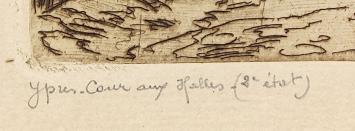 Ypres - Cour aux Halles - (2e état)